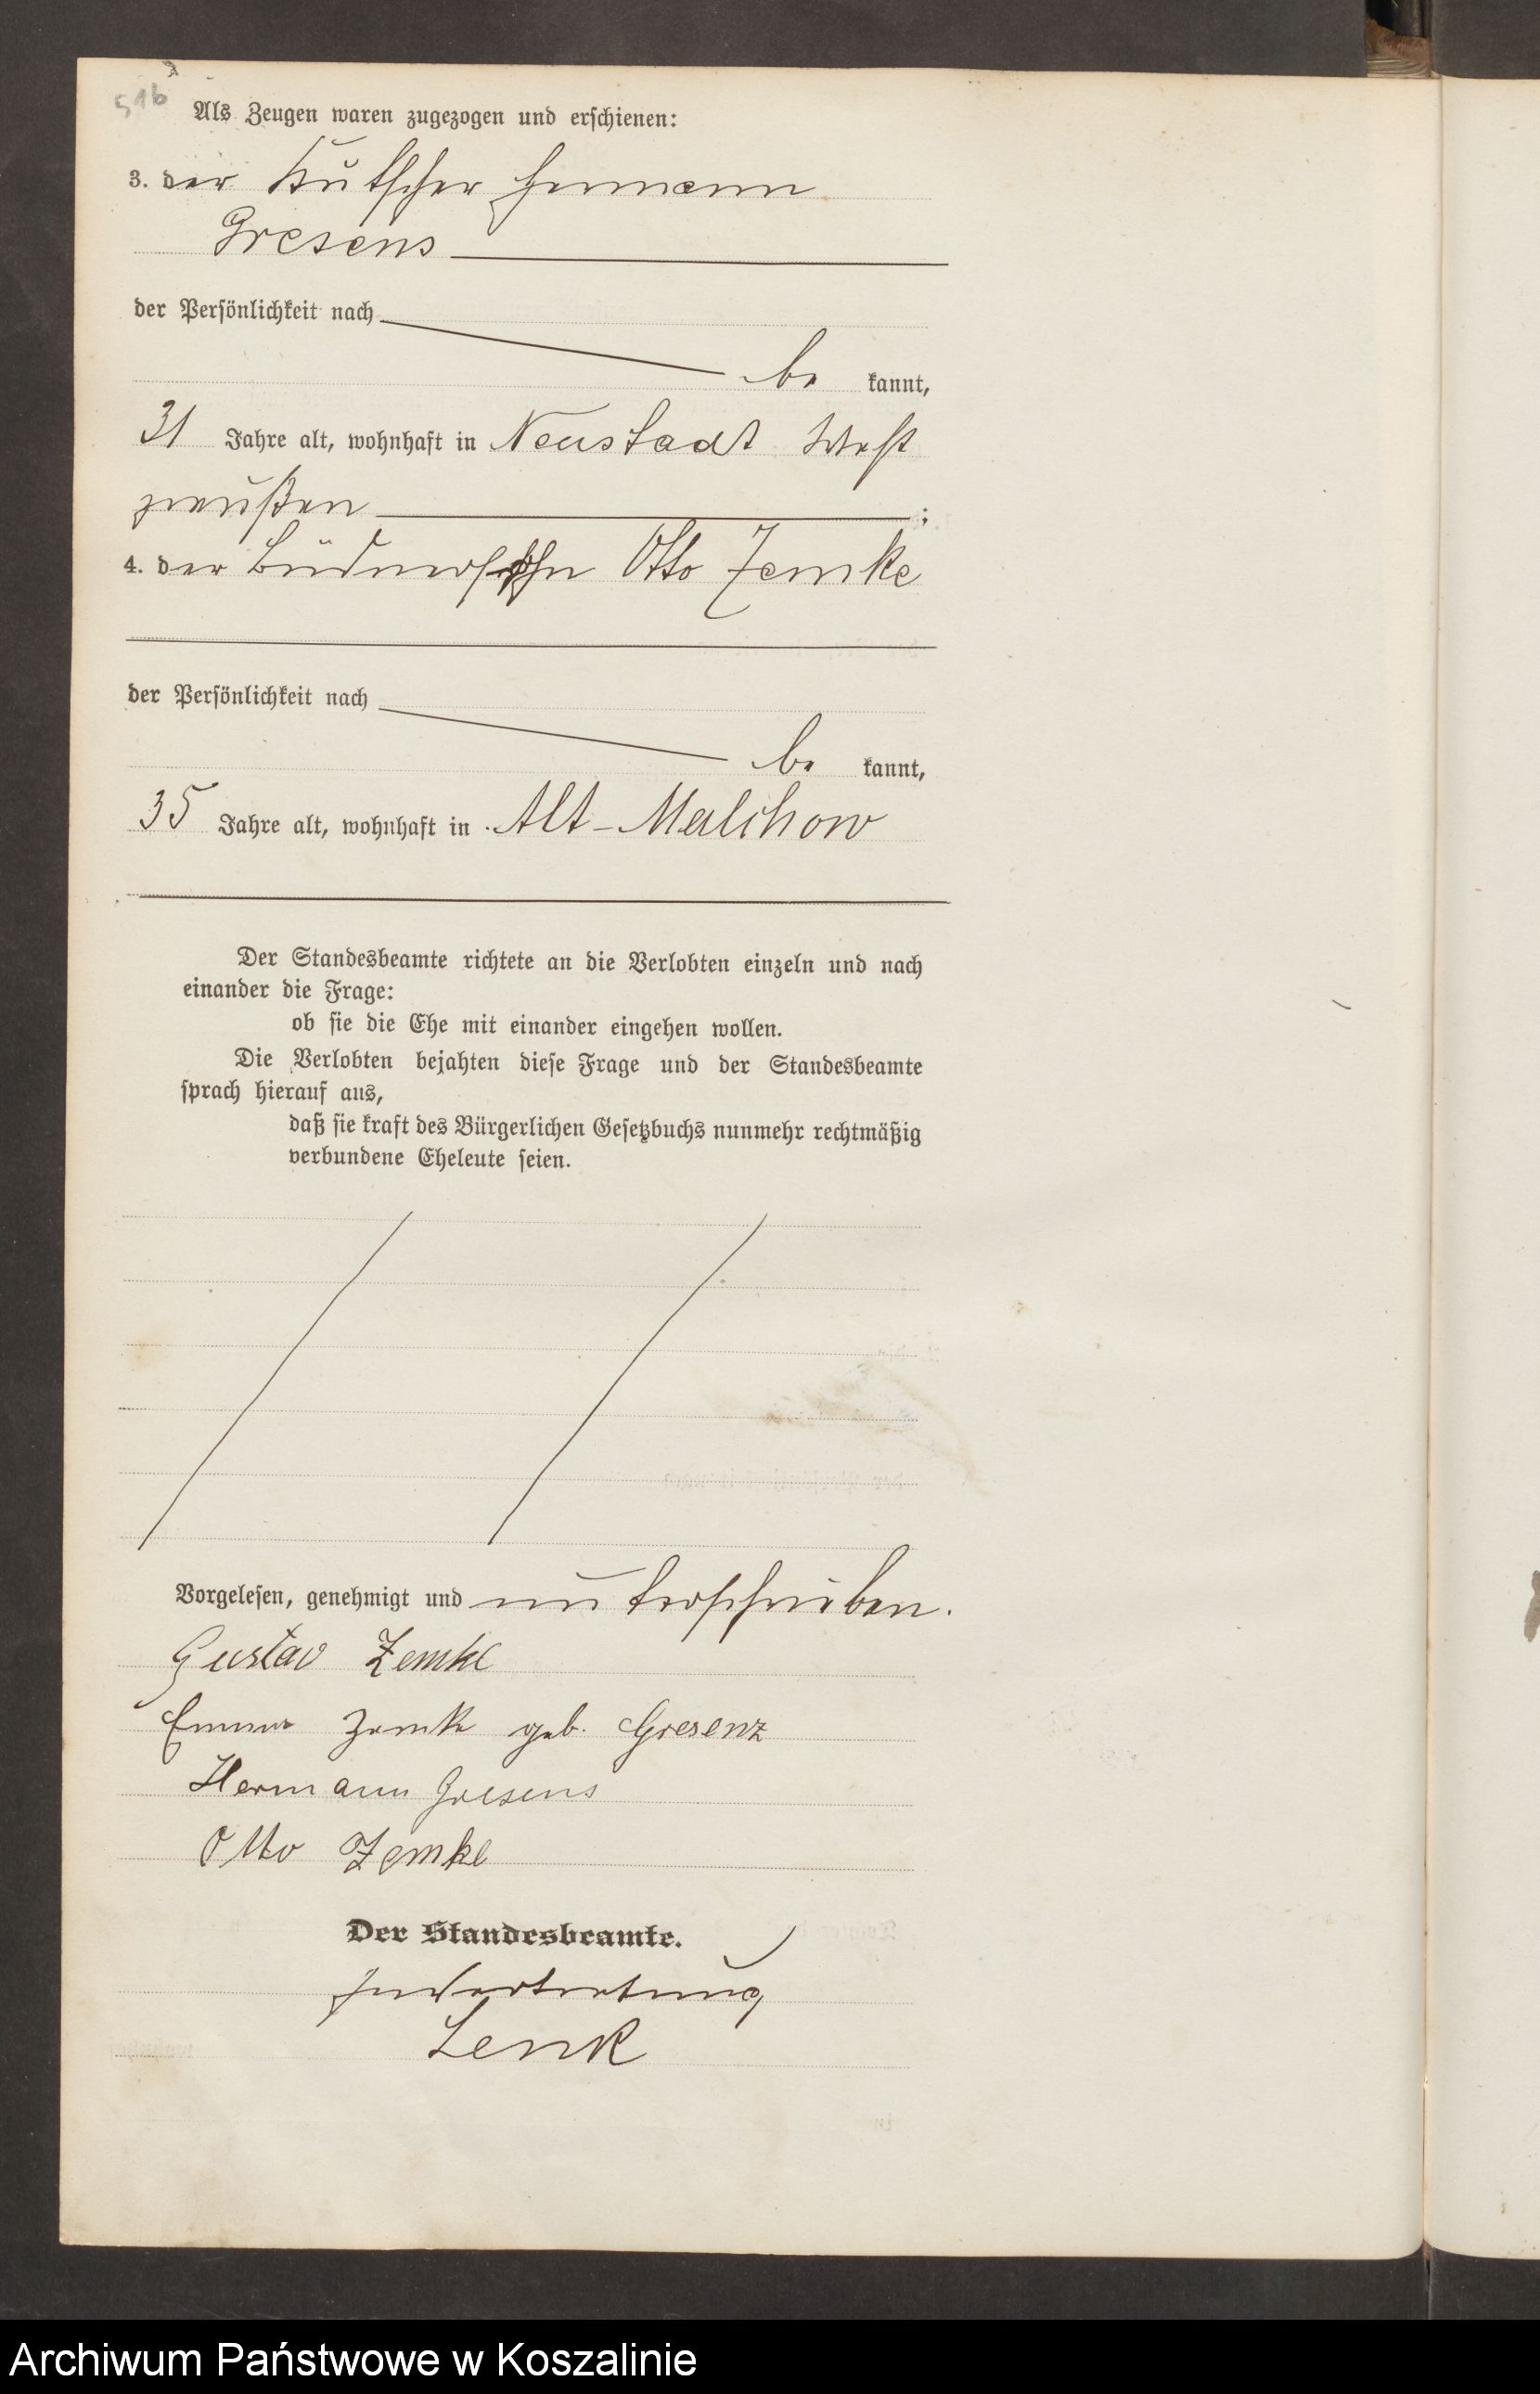 51b
Als Zeugen waren zugezogen und erschienen:
3. der Kutscher Hermann
Gresens
der Persönlichkeit nach
be kannt,
31 Jahre alt, wohnhaft in Neustadt West
preußen ;
4. der Büdnersohn Otto Zemke
der Persönlichkeit nach
be kannt,
35 Jahre alt, wohnhaft in Alt-Malchow
Der Standesbeamte richtete an die Verlobten einzeln und nach
einander die Frage:
ob sie die Ehe mit einander eingehen wollen.
Die Verlobten bejahten diese Frage und der Standesbeamte
sprach hierauf aus,
daß sie kraft des Bürgerlichen Gesetzbuchs nunmehr rechtmäßig
verbundene Eheleute seien.
Vorgelesen, genehmigt und unterschrieben.
Gustav Zemke
Emma Zemke geb. Gresenz
Hermann Gresens
Otto Zemke
Der Standesbeamte.
In Vertretung
Lenk
Archiwum Państwowe w Koszalinie